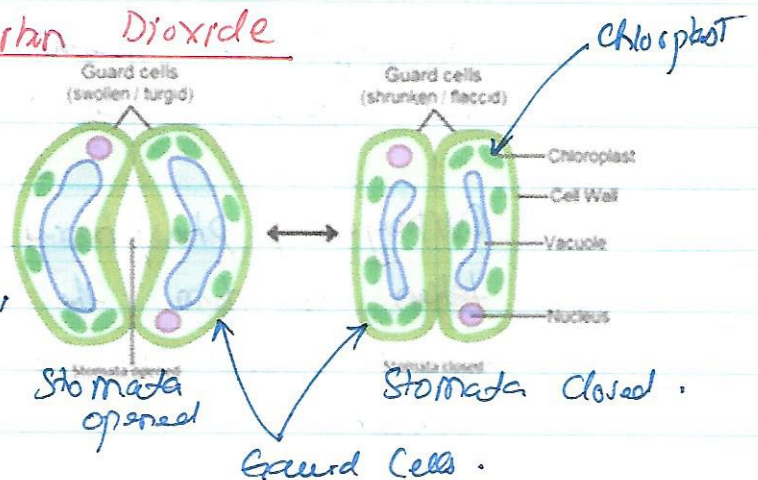 Dioxide
Chlorplast
Guard cells
(swollen / turgid)
Guard cells
(shrunken / flaccid)
Chloroplast
Cell Wall
Vacuole
Nucleus
Stomata opened
Stomata closed
Stomata
opened
Stomata Closed .
Gaurd Cells .